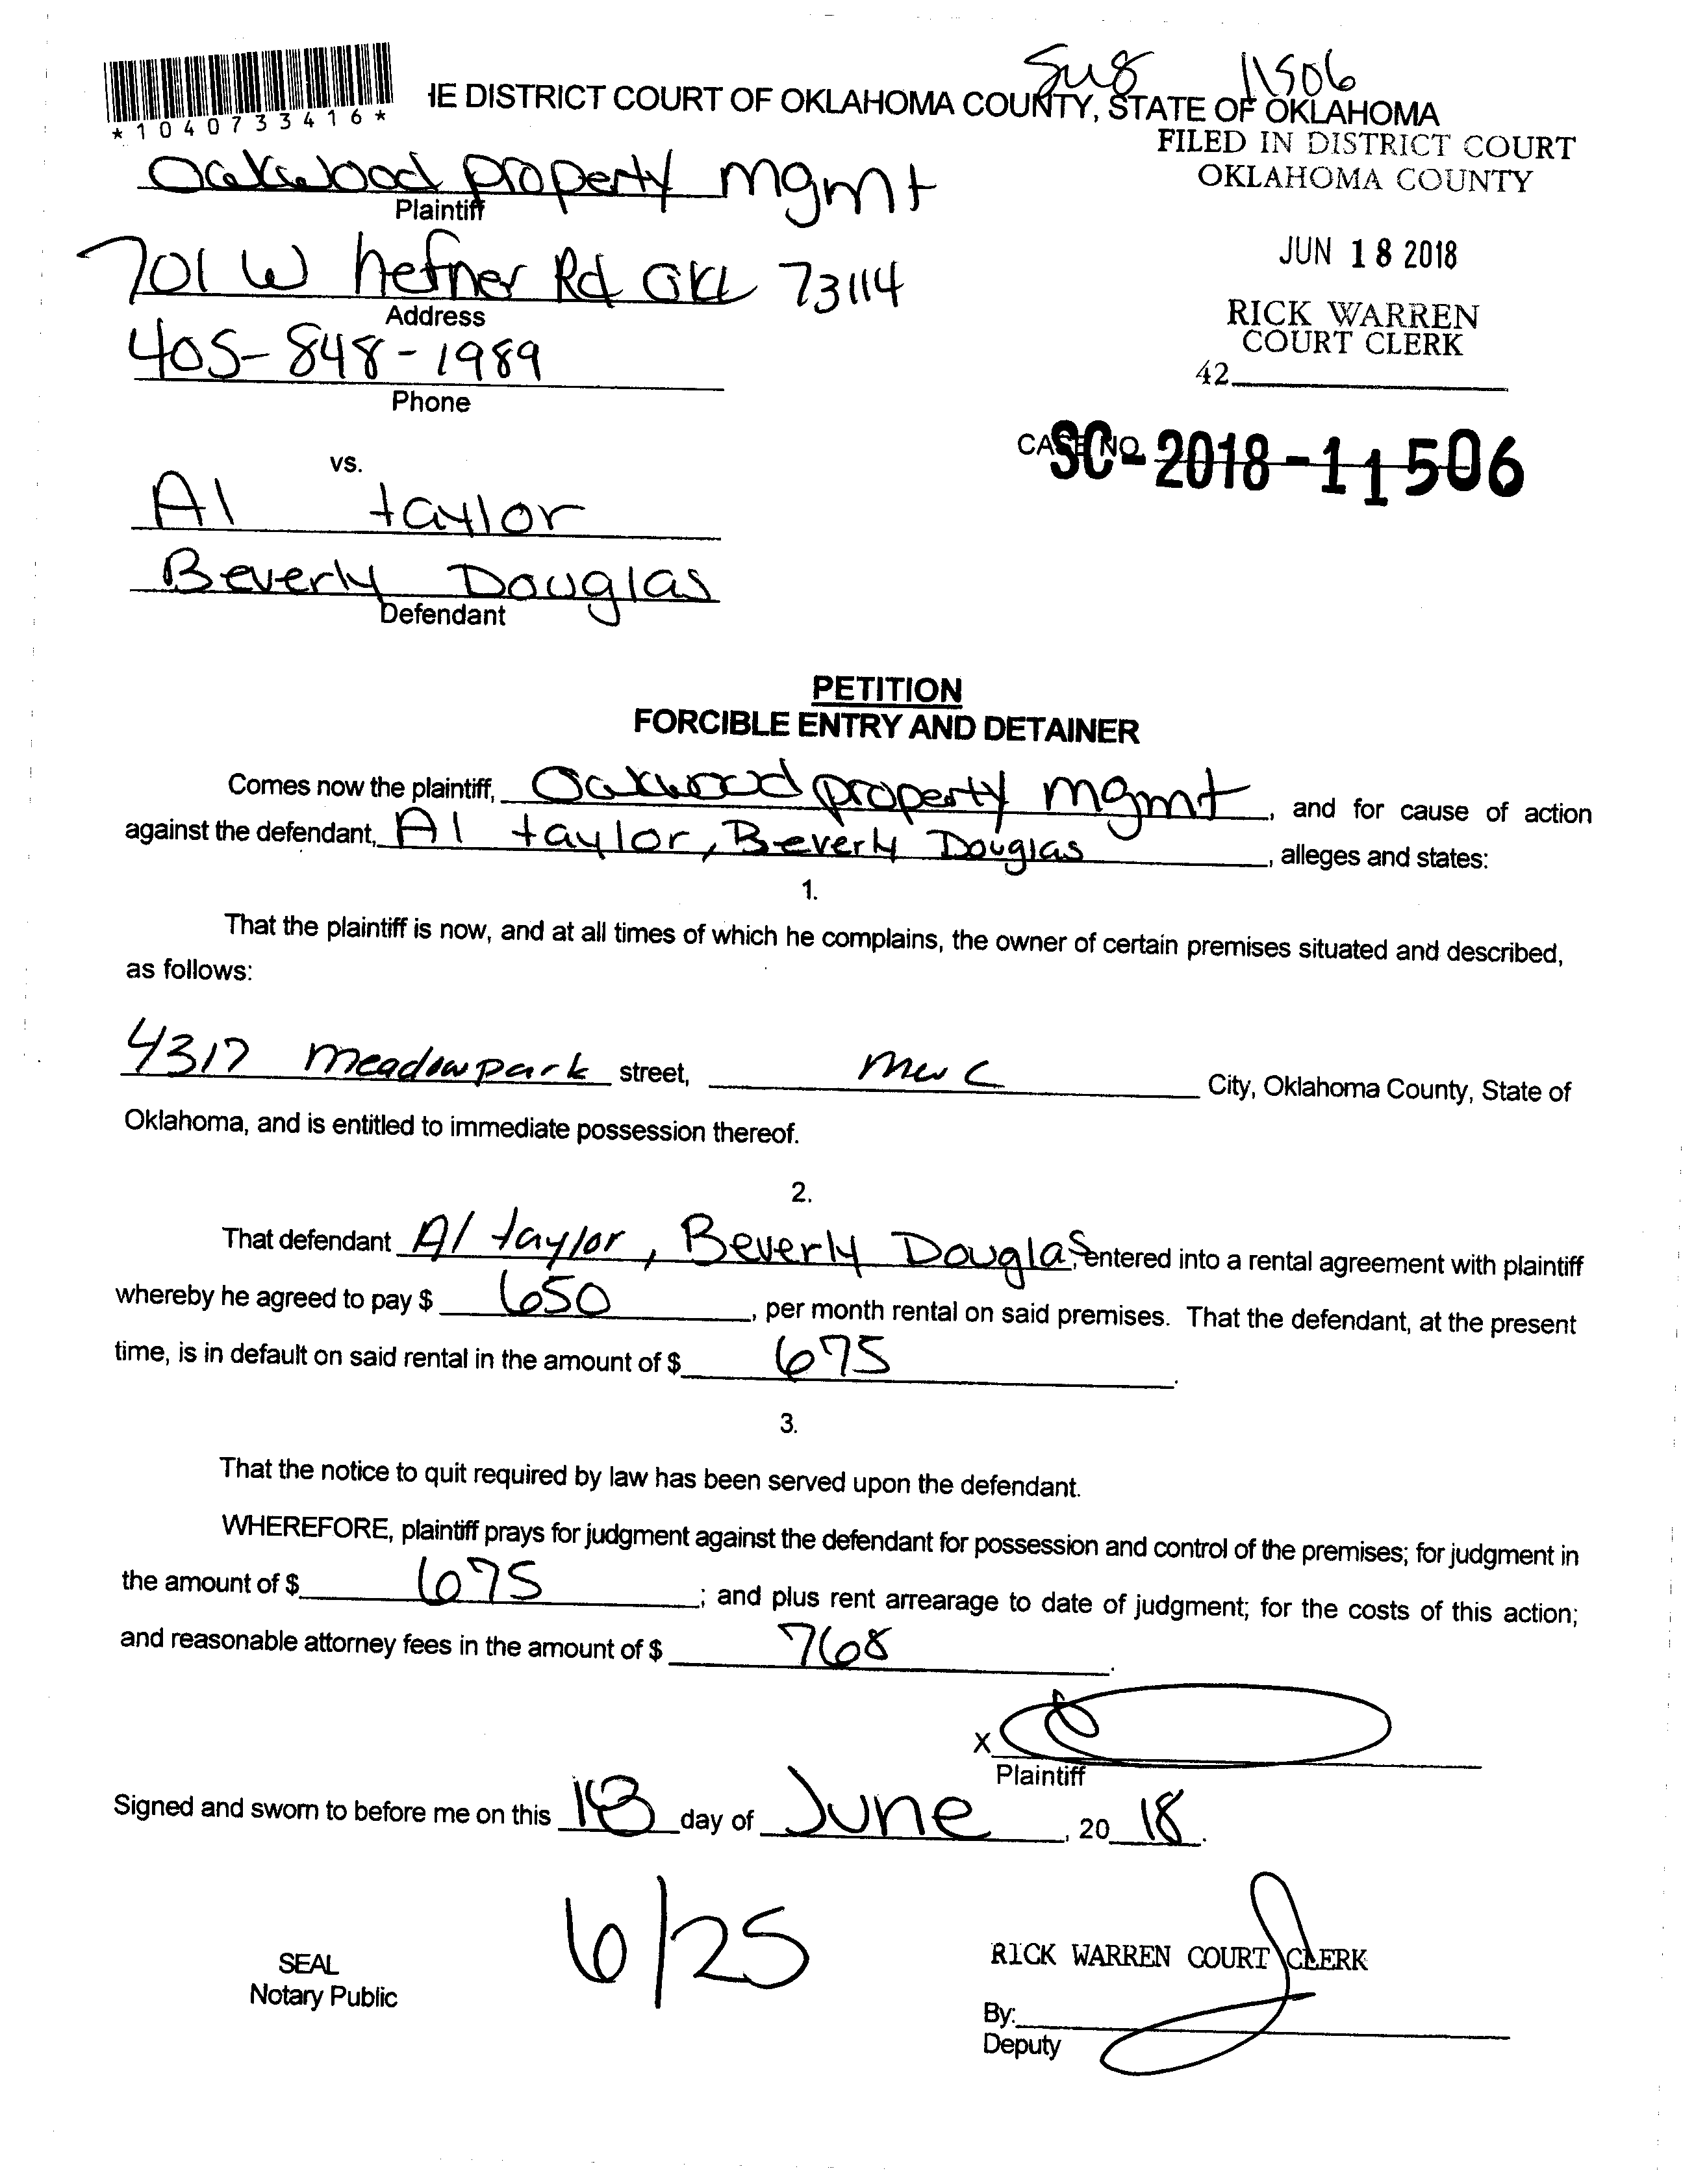 Sug 11506
*1040733416*
HE DISTRICT COURT OF OKLAHOMA COUNTY, STATE OF OKLAHOMA
FILED IN DISTRICT COURT
OKLAHOMA COUNTY
Oakwood property mgmt
Plaintiff
JUN 18 2018
701 W hefner Rd OKC 73114
Address
RICK WARREN
COURT CLERK
405-848-1989
42
Phone
CASE NO. SC-2018-11506
vs.
Al taylor
Beverly Douglas
Defendant
PETITION
FORCIBLE ENTRY AND DETAINER
Comes now the plaintiff, Oakwood property mgmt, and for cause of action
against the defendant, Al taylor, Beverly Douglas, alleges and states:
1.
That the plaintiff is now, and at all times of which he complains, the owner of certain premises situated and described,
as follows:
4317 meadowpark street, mwc City, Oklahoma County, State of
Oklahoma, and is entitled to immediate possession thereof.
2.
That defendant Al taylor, Beverly Douglas, entered into a rental agreement with plaintiff
whereby he agreed to pay $ 650, per month rental on said premises. That the defendant, at the present
time, is in default on said rental in the amount of $ 675.
3.
That the notice to quit required by law has been served upon the defendant.
WHEREFORE, plaintiff prays for judgment against the defendant for possession and control of the premises; for judgment in
the amount of $ 675; and plus rent arrearage to date of judgment; for the costs of this action;
and reasonable attorney fees in the amount of $ 768.
X
Plaintiff
Signed and sworn to before me on this 18 day of June, 20 18.
6/25
SEAL
Notary Public
RICK WARREN COURT CLERK
By:
Deputy